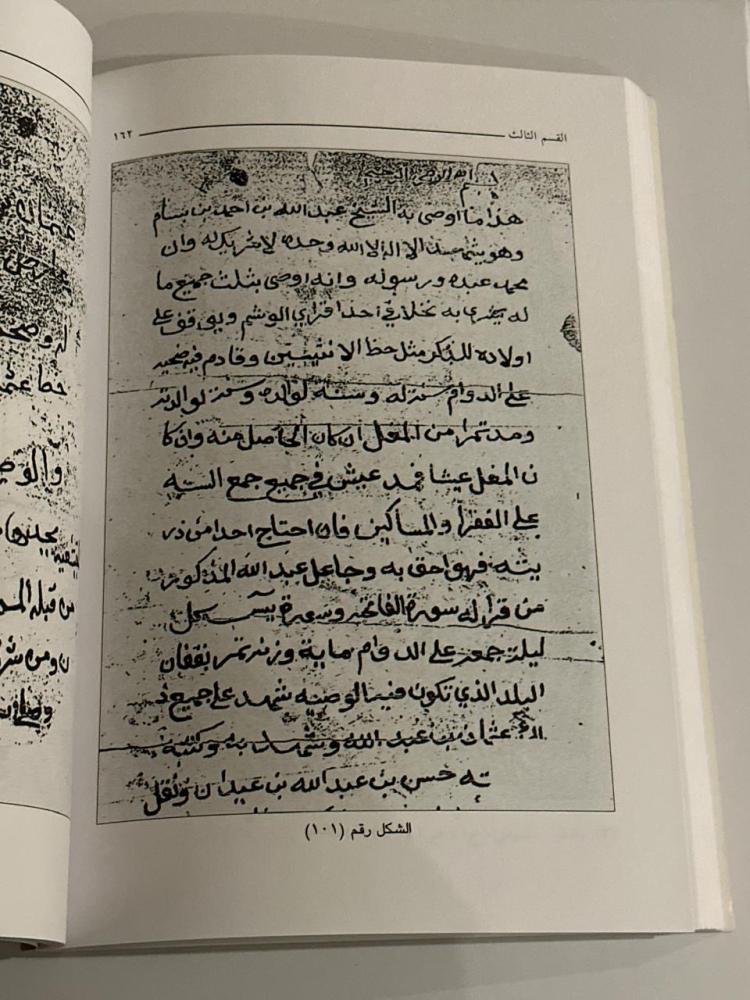 القسم الثالث ١٦٢
بسم الله الرحمن الرحيم
هذا ما اوصى به الشيخ عبد الله بن احمد بن بسام
وهو يشهد ان لا اله الا الله وحده لا شريك له وان
محمد عبده ورسوله وانه اوصى بثلث جميع ما
له يشترى به نخلا في احدا قراي الوشم ويوقف على
اولاده للذكر مثل حظ الانثيين وقادم فيه ضحيه
على الدوام سنة له وسنه لوالده وسنة لوالدته
ومد تمرا من المغل ان كان الحاصل منه وان كا
ن المغل عيشا فمد عيش في جميع جمع السنه
على الفقرا والمساكين فان احتاج احدا من ذر
يته فهو احق به وجاعل عبد الله المذكور
من قرا له سورة الفاتحه وسورة يس كل
ليلة جمعه على الدوام ماية وزنة تمر بقفان
البلد الذي تكون فيه الوصيه شهد على جميع ذ
الك عثمان بن عبد الله وشهد به وكتبه
ته حسن بن عبد الله بن عيدان ونقل
الشكل رقم (١٠١)
عثمان
له وضحيه
من قبله
ن ومن